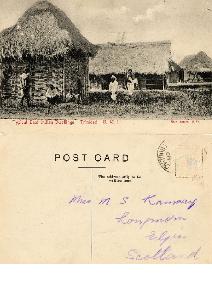 Typical East Indian Dwellings - Trinidad B. W. I.
POST CARD
The address only to be
written here.
Miss M S
Longmorn
Elgin
Scotland